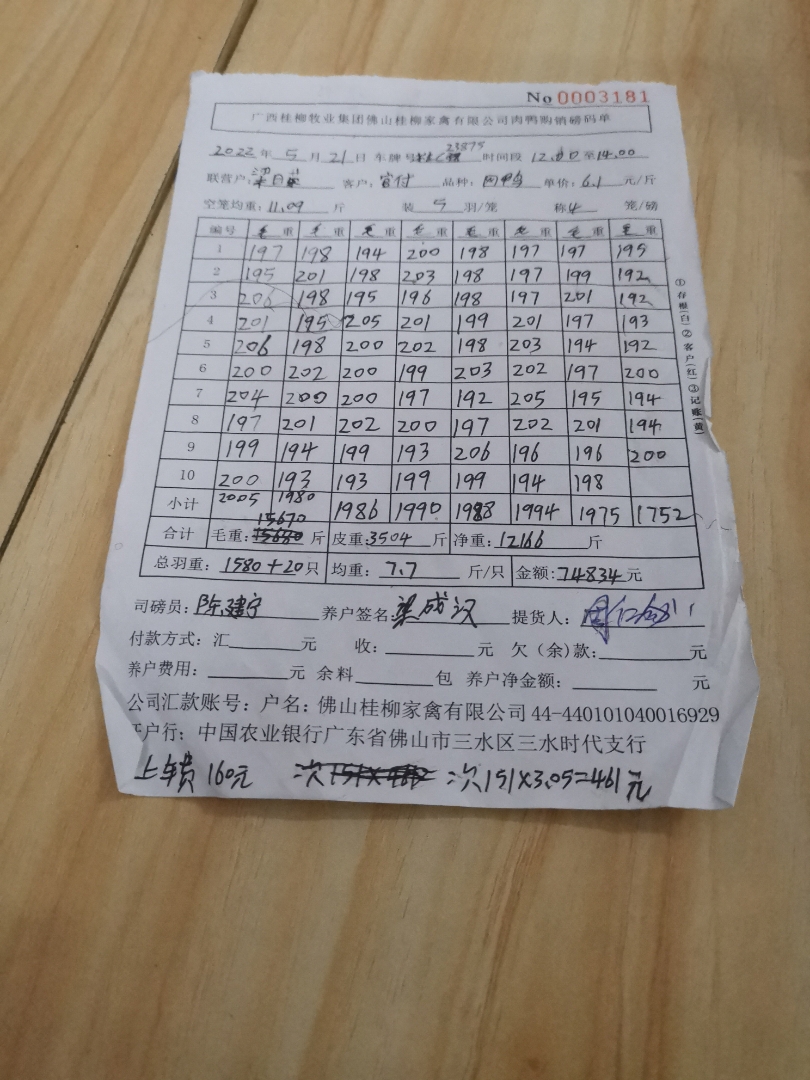 No 0003181
广西桂柳牧业集团佛山桂柳家禽有限公司肉鸭购销磅码单
2022年 5 月 21 日 车牌号 23875 时间段 12.00至14.00
联营户: 客户: 官付 品种: 鸭 单价: 6.1 元/斤
空笼均重: 11.09 斤 装 5 羽/笼 称 4 笼/磅
编号 毛重 毛重 毛重 毛重 毛重 毛重 毛重 毛重
1 197 198 194 200 198 197 197 195
2 195 201 198 203 198 197 199 192
3 206 198 195 196 198 197 201 192
4 201 195 205 201 199 201 197 193
5 206 198 200 202 198 203 194 192
6 200 202 200 199 203 202 197 200
7 204 200 200 197 192 205 195 194
8 197 201 202 200 197 202 201 194
9 199 194 199 193 206 196 196 200
10 200 193 193 199 199 194 198
小计 2005 1980 1986 1990 1988 1994 1975 1752
合计 毛重: 15670 斤 皮重: 3504 斤 净重: 12166 斤
总羽重: 1580+20 只 均重: 7.7 斤/只 金额: 74834 元
司磅员: 陈建宁 养户签名: 梁成汉 提货人:
付款方式: 汇 元 收: 元 欠(余)款: 元
养户费用: 元 余料 包 养户净金额: 元
公司汇款账号: 户名: 佛山桂柳家禽有限公司 44-440101040016929
户行: 中国农业银行广东省佛山市三水区三水时代支行
上车费 160元 次151×3.05=461元
①存根(白)②客户(红)③记账(黄)